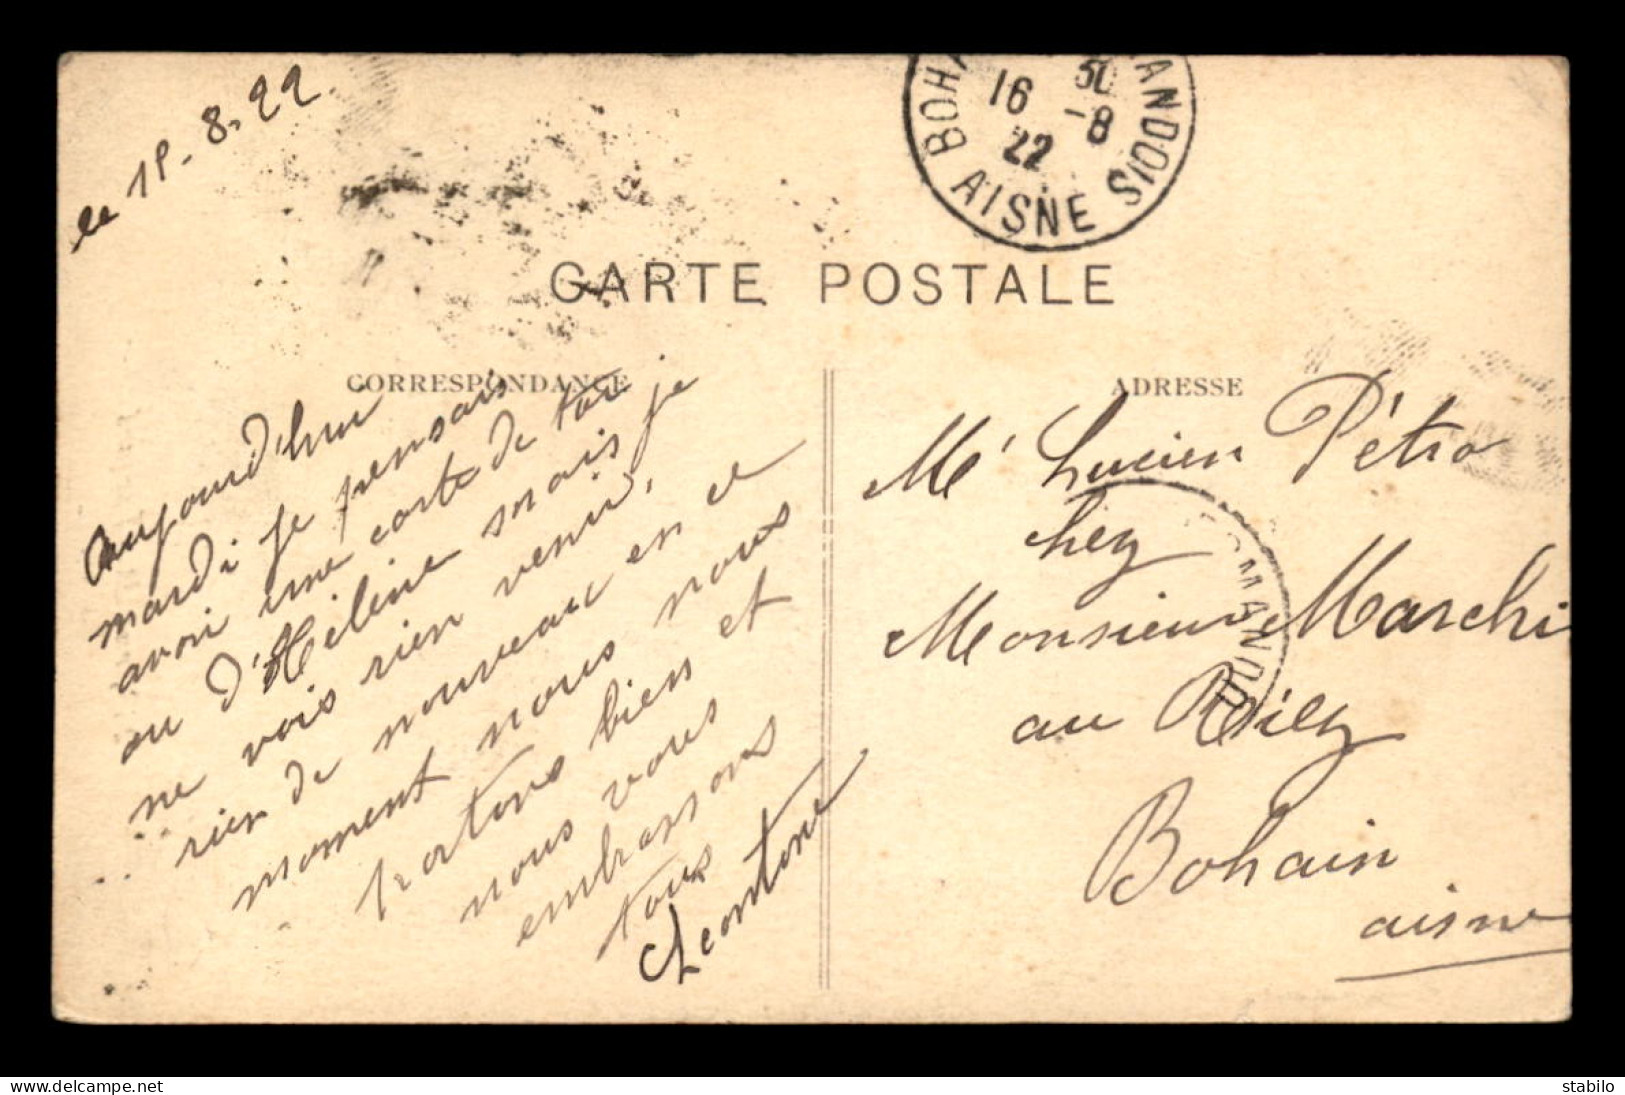 le 15-8-22.
BOHA ANDOIS
16 30
22 -8
AISNE
CARTE POSTALE
CORRESPONDANCE
Aujourd'hui
mardi je pensais
avoir une carte de toi
ou d'Hélène mais je
ne vois rien venir,
rien de nouveau en ce
moment nous nous
portons bien et
nous vous
embrassons
tous
Leontine
ADRESSE
Mr Lucien Pétro
chez
Monsieur Marchi
au
Bohain
aisne
MANDO
delcampe.net
stabilo